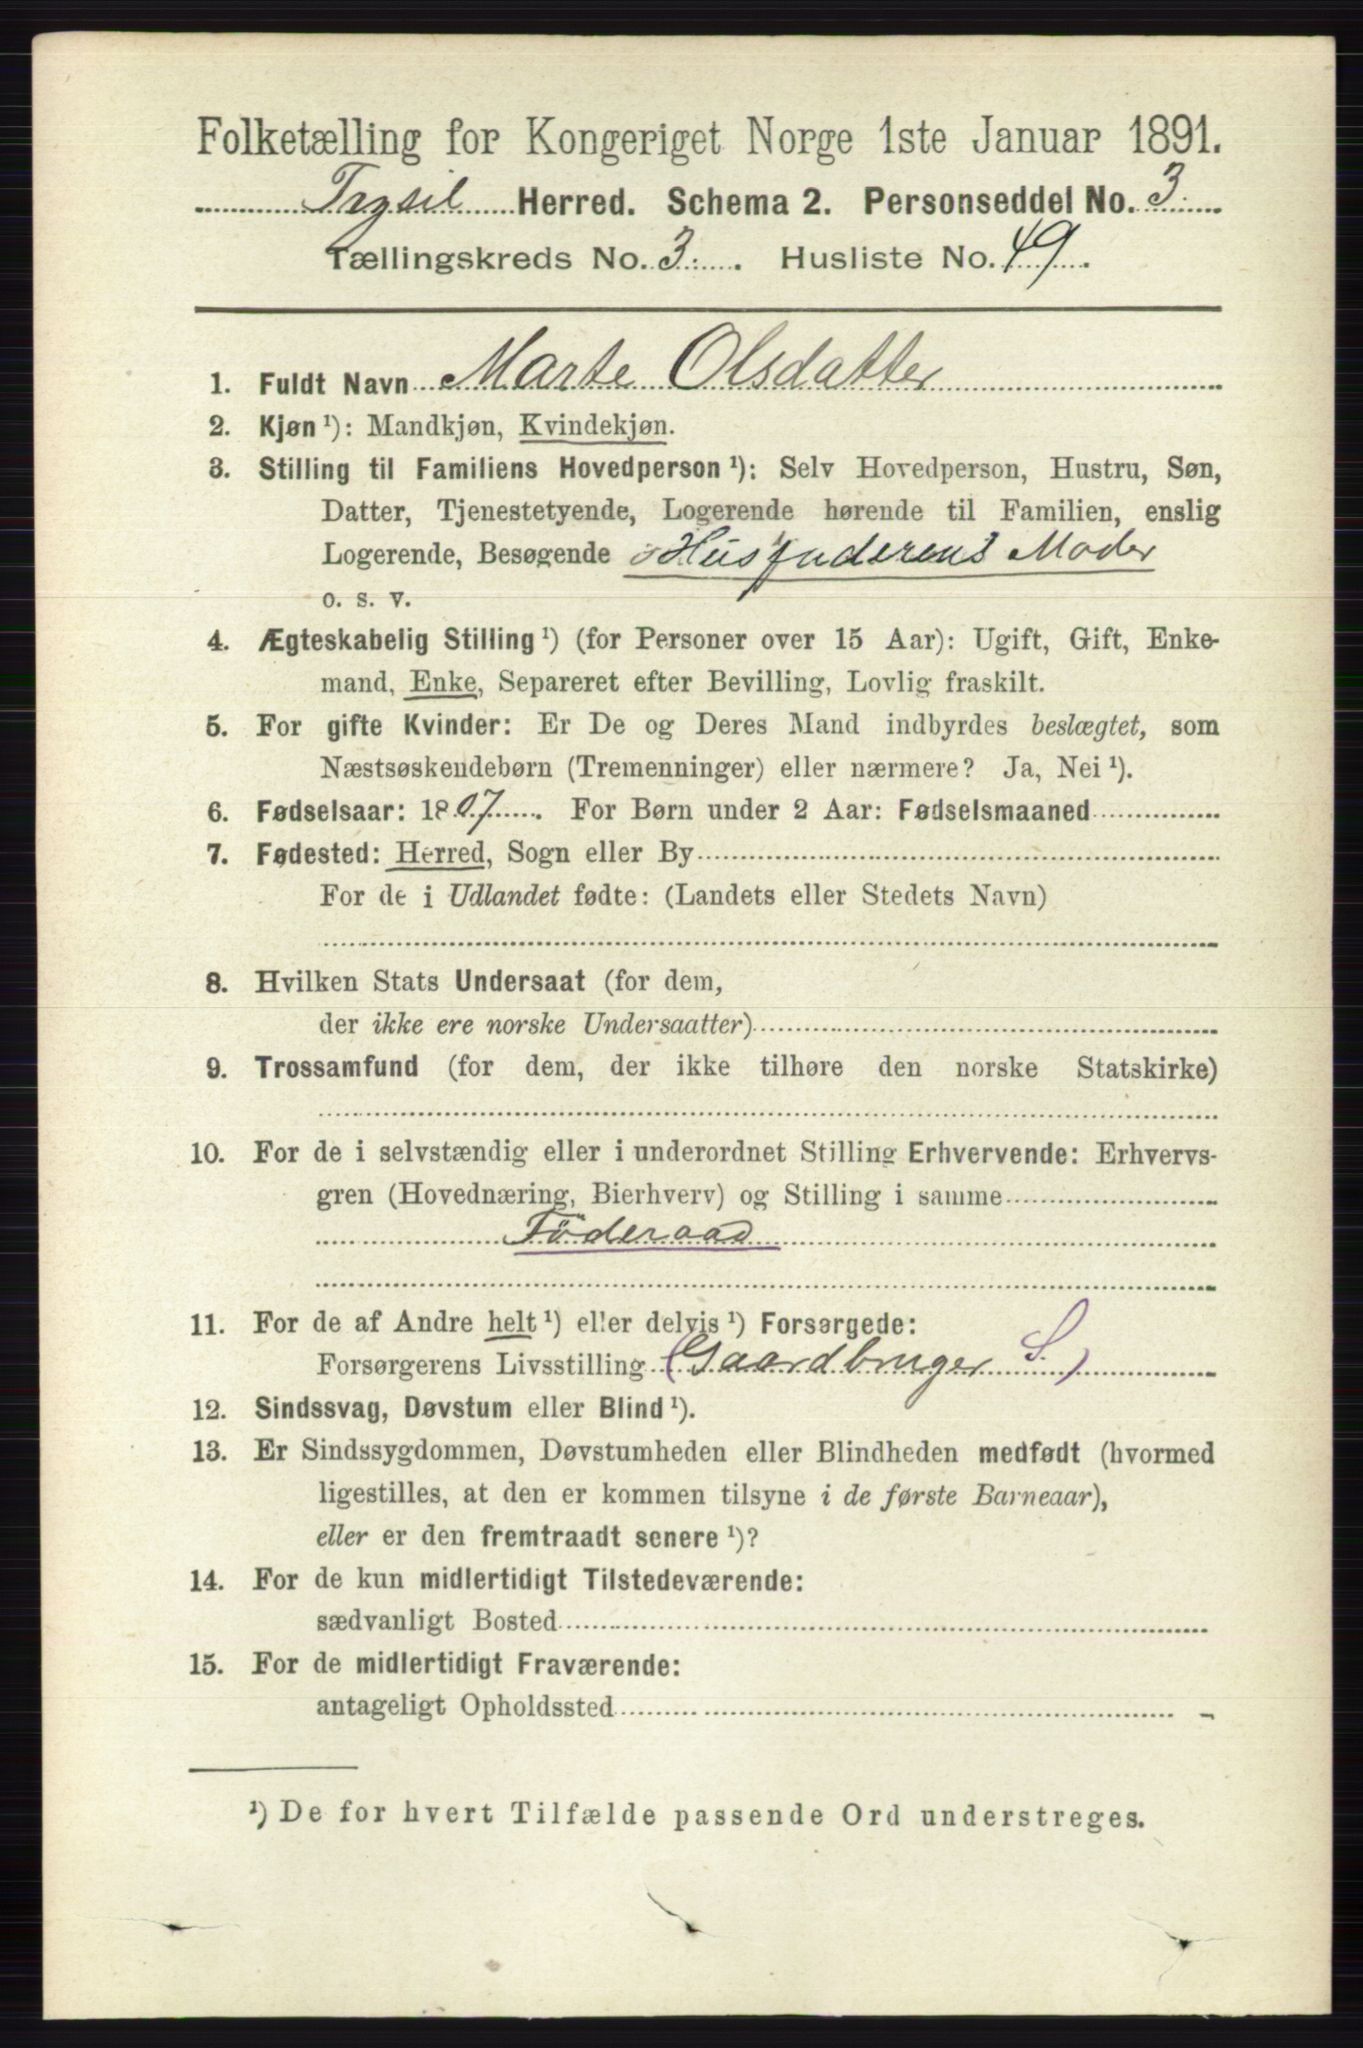 Folketælling for Kongeriget Norge 1ste Januar 1891.
Trysil Herred. Schema 2. Personseddel No. 3.
Tællingskreds No. 3. Husliste No. 49.
1. Fuldt Navn Marte Olsdatter
2. Kjøn ¹): Mandkjøn, Kvindekjøn.
3. Stilling til Familiens Hovedperson ¹): Selv Hovedperson, Hustru, Søn,
Datter, Tjenestetyende, Logerende hørende til Familien, enslig
Logerende, Besøgende Husfaderens Moder
o. s. v.
4. Ægteskabelig Stilling ¹) (for Personer over 15 Aar): Ugift, Gift, Enke-
mand, Enke, Separeret efter Bevilling, Lovlig fraskilt.
5. For gifte Kvinder: Er De og Deres Mand indbyrdes beslægtet, som
Næstsøskendebørn (Tremenninger) eller nærmere? Ja, Nei ¹).
6. Fødselsaar: 1807. For Børn under 2 Aar: Fødselsmaaned
7. Fødested: Herred, Sogn eller By
For de i Udlandet fødte: (Landets eller Stedets Navn)
8. Hvilken Stats Undersaat (for dem,
der ikke ere norske Undersaatter)
9. Trossamfund (for dem, der ikke tilhøre den norske Statskirke)
10. For de i selvstændig eller i underordnet Stilling Erhvervende: Erhvervs-
gren (Hovednæring, Bierhverv) og Stilling i samme
Föderaad
11. For de af Andre helt ¹) eller delvis ¹) Forsørgede:
Forsørgerens Livsstilling (Gaardbruger S.)
12. Sindssvag, Døvstum eller Blind ¹).
13. Er Sindssygdommen, Døvstumheden eller Blindheden medfødt (hvormed
ligestilles, at den er kommen tilsyne i de første Barneaar),
eller er den fremtraadt senere ¹)?
14. For de kun midlertidigt Tilstedeværende:
sædvanligt Bosted
15. For de midlertidigt Fraværende:
antageligt Opholdssted
¹) De for hvert Tilfælde passende Ord understreges.